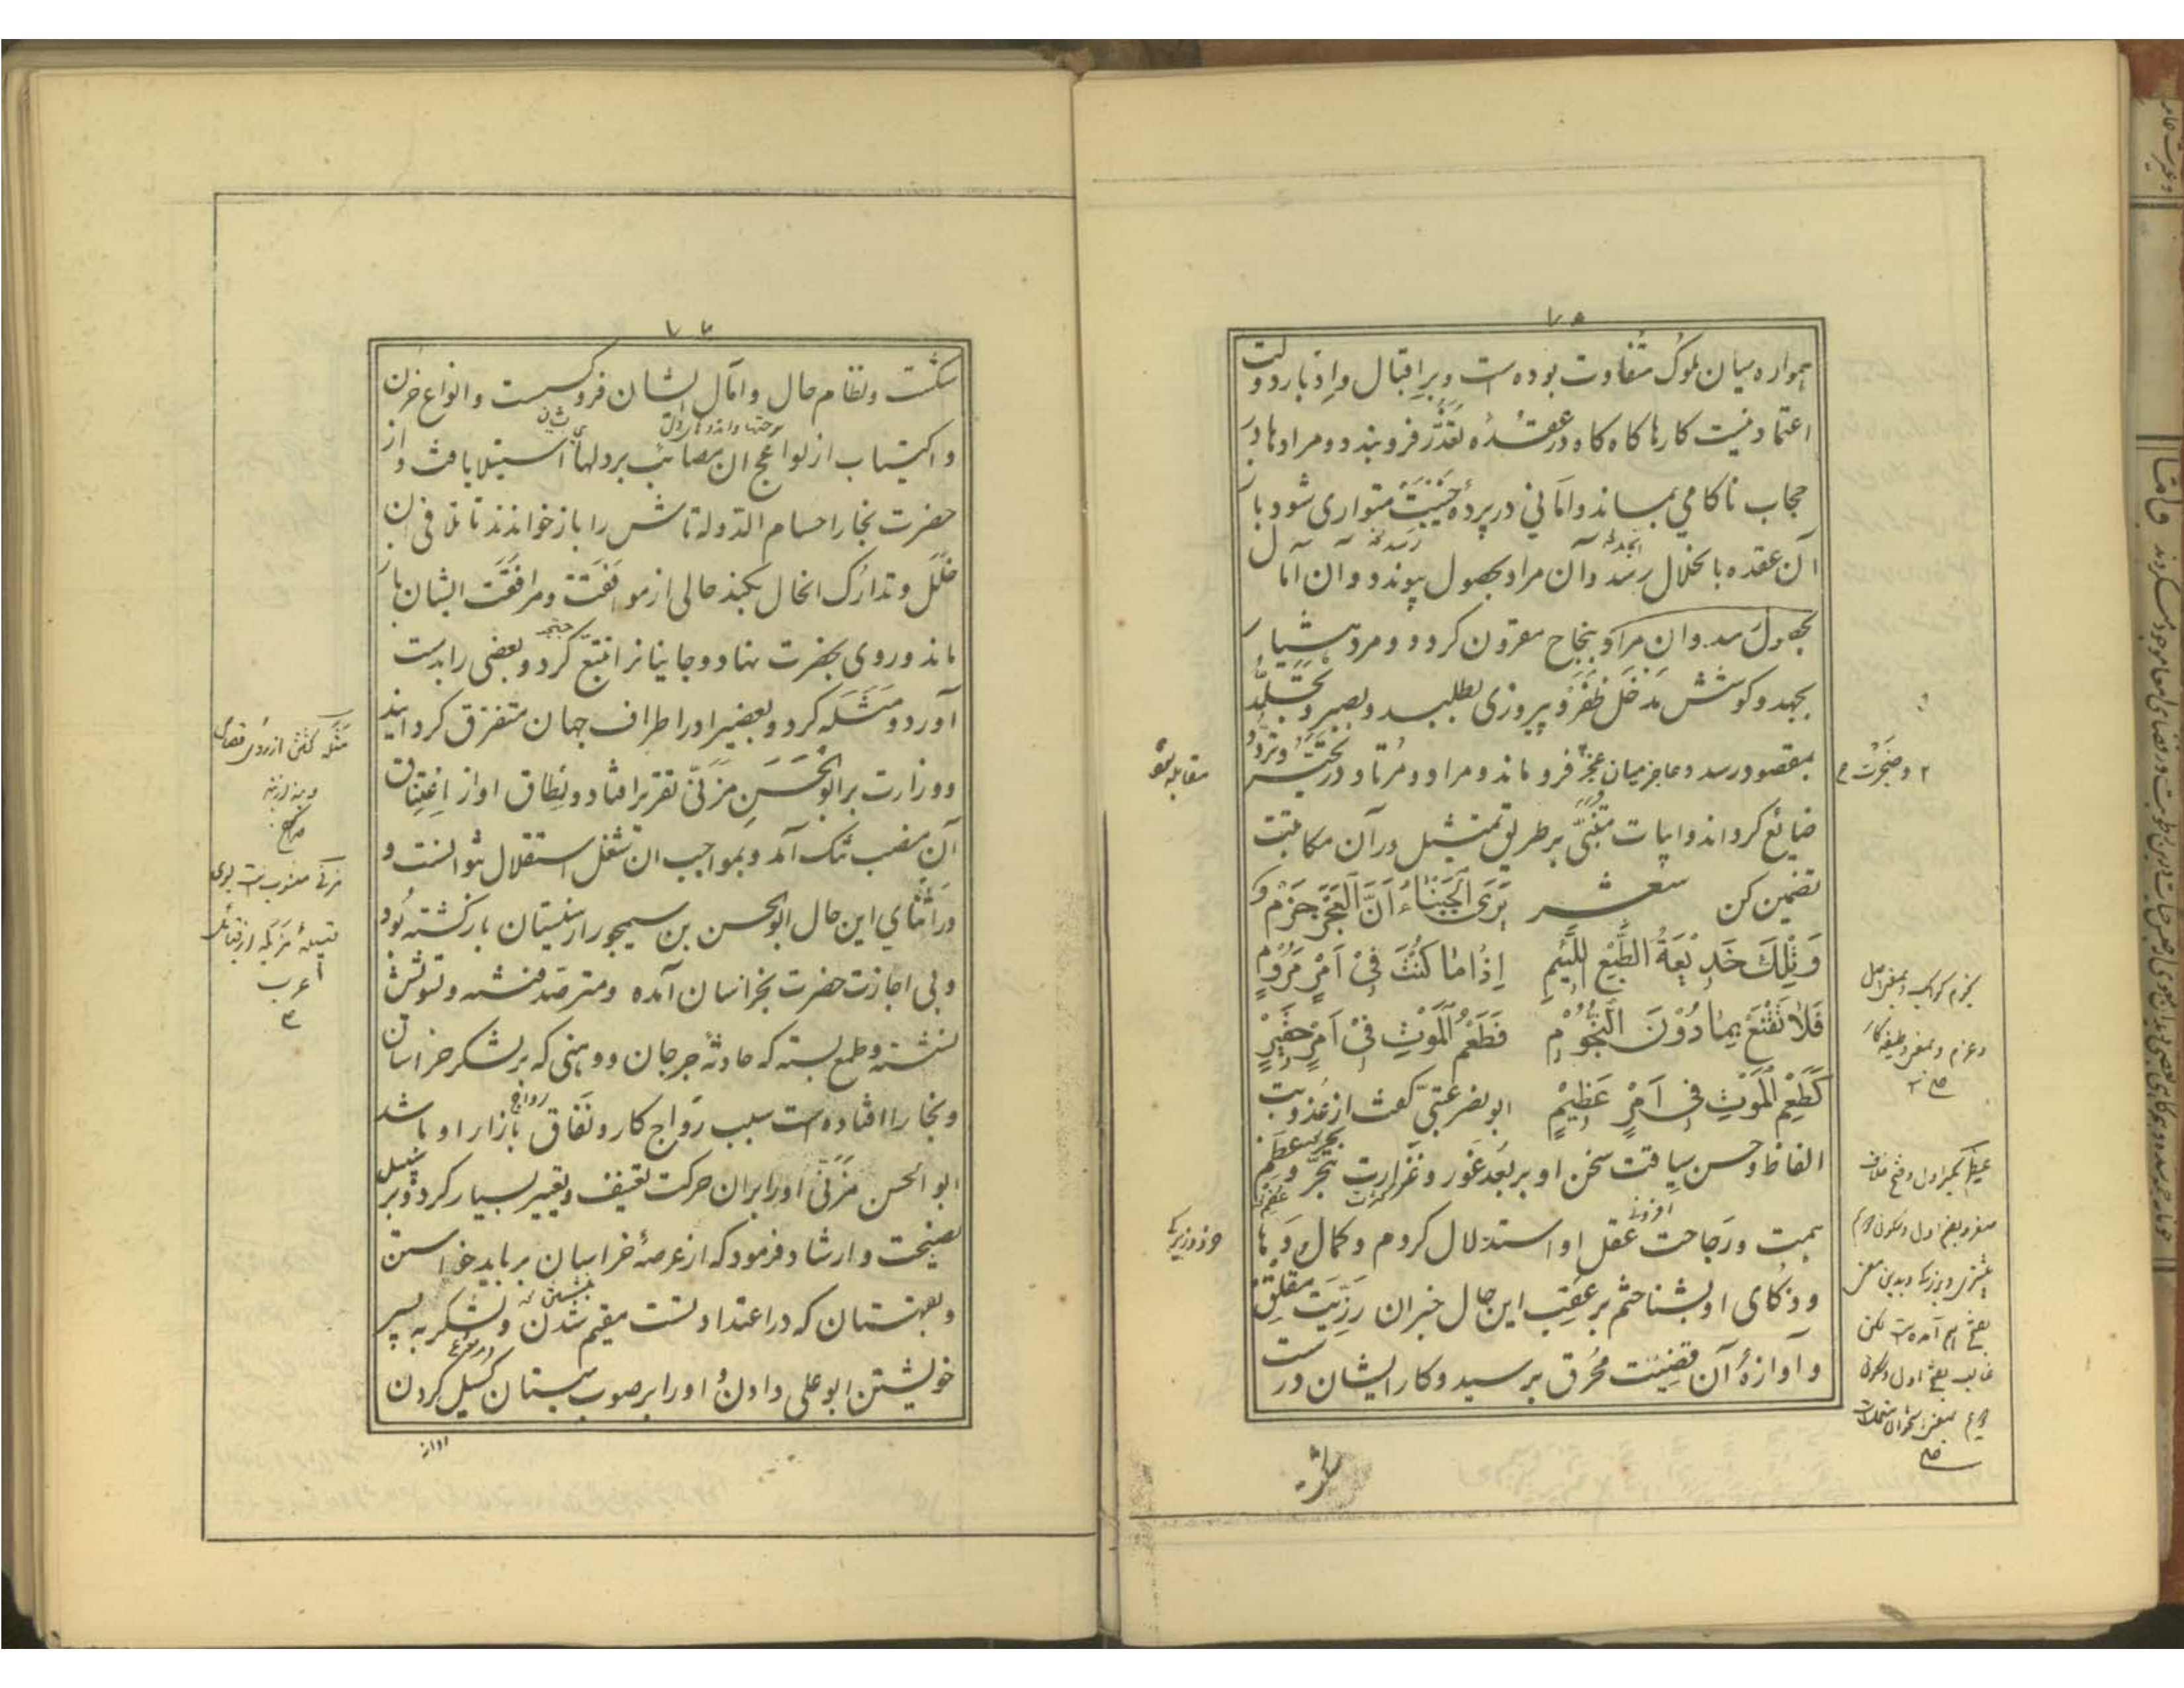 ۷۵
همواره میان ملوک متفاوت بوده است و بر اقبال و ادبار دولت
اعتماد نیست کارها کاه کاه در عقدهٔ تعذّر فرو بندد و مرادها در
حجاب ناکامی بماند و امانی در پردهٔ خَیْبَت متواری شود باز
آن عقده بانحلال رسد و آن مراد بحصول پیوندد و آن آمال
بحصول رسد و ان مراد بنجاح مقرون کردد و مرد هشیار
بجهد و کوشش مدخل ظفر و پیروزی بطلبد و بصبر و تجلّد
بمقصود رسد و عاجز میان عجز فرو ماند و مراد و مرتاد در تحیّر و تردّد
ضائع کرداند و ابیات متنبّی بر طریق تمثیل در آن مکاتبت
تضمین کن شعر یَرَی الْجُبَنَاءُ اَنَّ الْعَجْزَ حَزْمٌ
وَتِلْكَ خَدِیْعَةُ الطَّبْعِ اللَّئِیْمِ اِذٰا مٰا كُنْتَ فِیْ اَمْرٍ مَرُوْمٍ
فَلاٰ تَقْنَعْ بِمٰا دُوْنَ النُّجُوْمِ فَطَعْمُ الْمَوْتِ فِیْ اَمْرٍ حَقِیْرٍ
كَطَعْمِ الْمَوْتِ فِی اَمْرٍ عَظِیْمٍ ابو نصر عتبیّ کفت از عذوبت
الفاظ و حسن سیاقت سخن او بر بُعد غور و غزارت تبحّر و عظم
همت و رجاحت عقل او استدلال کردم و کمال دها
و ذکای او بشناختم بر عقب این حال خبران رزیّت مقلق
و آوازهٔ آن قضیّت محرق برسید و کار ایشان در
۲ و ضجرت
مقابله
بجزم
و عزم و بمعنی
عِظَم بکسر اول و فتح
صغر و بضم اول و سکون دوم
بفتح هم آمده است لکن
غالب بفتح اول و سکون
دوم بمعنی استخوان
۷۶
شکست و نظام حال و آمال ایشان فرو کسست و انواع حزن
و اکتیاب از لواعج ان مصائب بر دلها استیلا یافت و از
حضرت بخارا حسام الدّوله تاش را باز خواندند تا تلافی ان
خلل و تدارک انحال بکند حالی از موافقت و مرافقت ایشان باز
ماند و روی بحضرت نهاد و جانیانرا تتبّع کرد و بعضی را بدست
آورد و مثله کرد و بعضیرا در اطراف جهان متفرّق کردانید
و وزارت بر ابوالحسن مزنیّ تقریر افتاد و نطاق او از اعتناق
آن منصب تنک آمد و بمواجب ان شغل استقلال نتوانست و
در اثنای این حال ابو الحسن بن سیمجور از سیستان باز کشته بود
و بی اجازت حضرت بخراسان آمده و مترصد فتنه و تشویش
نشسته و طمع بسته که حادثهٔ جرجان و وهنی که بر لشکر خراسان
و بخارا افتاده است سبب رواج کار و نفاق بازار او باشد
ابو الحسن مزنی او را بران حرکت تعنیف و تعییر بسیار کرد و بر سبیل
نصیحت و ارشاد فرمود که از عرصهٔ خراسان بر باید خواستن
و بقهستان که در اعتداد تست مقیم شدن و لشکر به پسر
خویشتن ابو علی دادن و او را بر صوب سیستان کسیل کردن
مزنی منسوب است بسوی
قبیلهٔ مزینه از قبائل
عرب